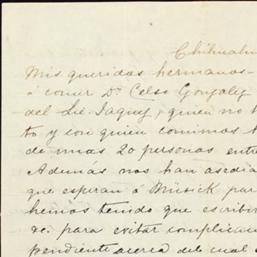 Chihuahu
Mis queridas hermanas-
á comer Dn Celso Gonzalez
del Lic. Jaquez, quien no h
to y con quien comimos h
de unas 20 personas entr
Además nos han asedia
que esperan á Músick par
hemos tenido que escribir
&c. para evitar complican
pendiente acerca del cual